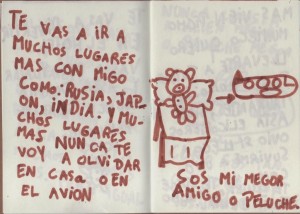 TE VAS A IR A
MUCHOS LUGARES
MAS CON MIGO
COMO: RUSIA, JAP-
ON, INDIA. Y MU-
CHOS LUGARES
MAS NUNCA TE
VOY A OLVIDAR
EN CASA O EN
EL AVION
SOS MI MEGOR
AMIGO O PELUCHE.